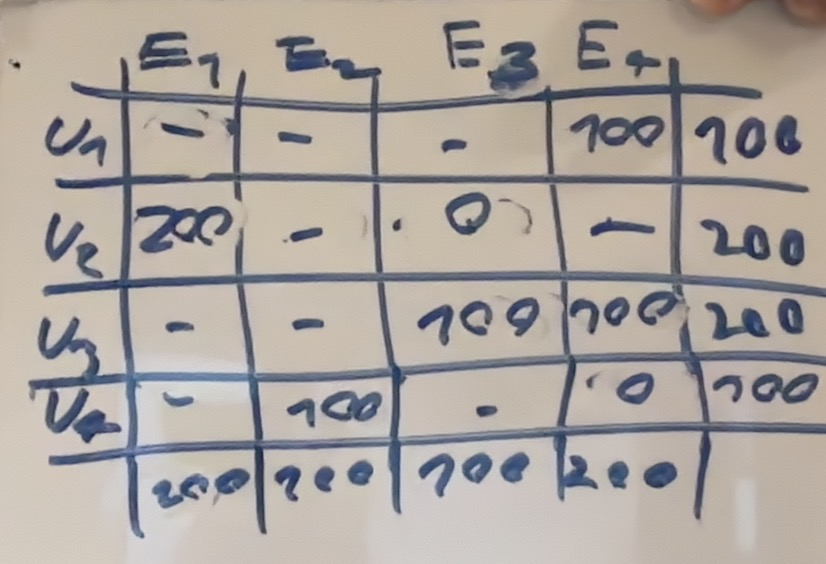 E1 E2 E3 E4
U1 - - - 100 100
U2 200 - 0 - 200
U3 - - 100 100 200
U4 - 100 - 0 100
200 100 100 200